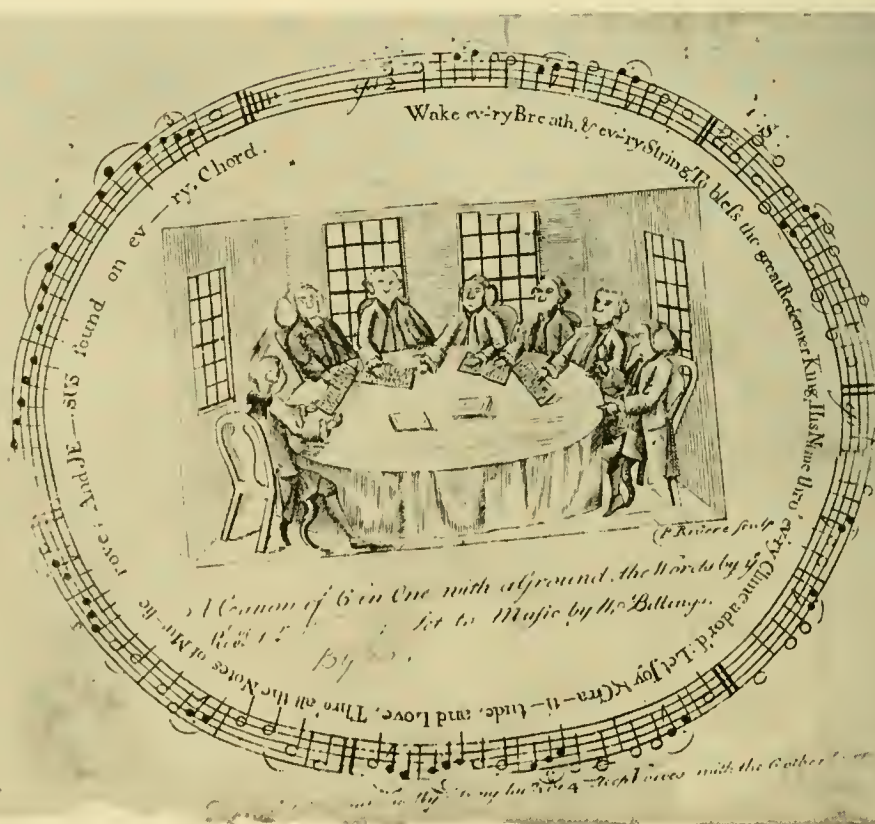 Wake ev'ry Breath, & ev'ry String, To bleſs the great Redeemer King, His Name thro' ev'ry Clime ador'd: Let Joy & Gra—ti—tude, and Love, Thro' all the Notes of Mu—ſic rove; And JE—SUS ſound on ev—ry, Chord.
P. Revere ſculp
A Canon of 6 in One with a Ground, the Words by yᵉ
Set to Muſic by Wᵐ Billings.
By
Voices with the 6 other